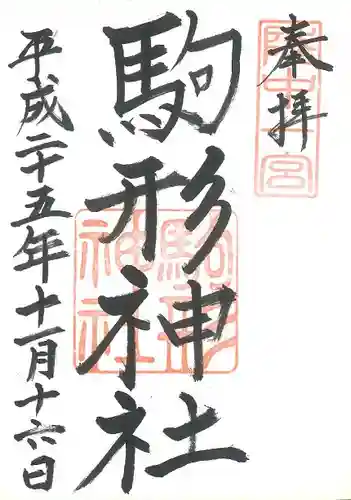 奉拝
陸中一宮
駒形神社
駒形神社
平成二十五年十一月十六日